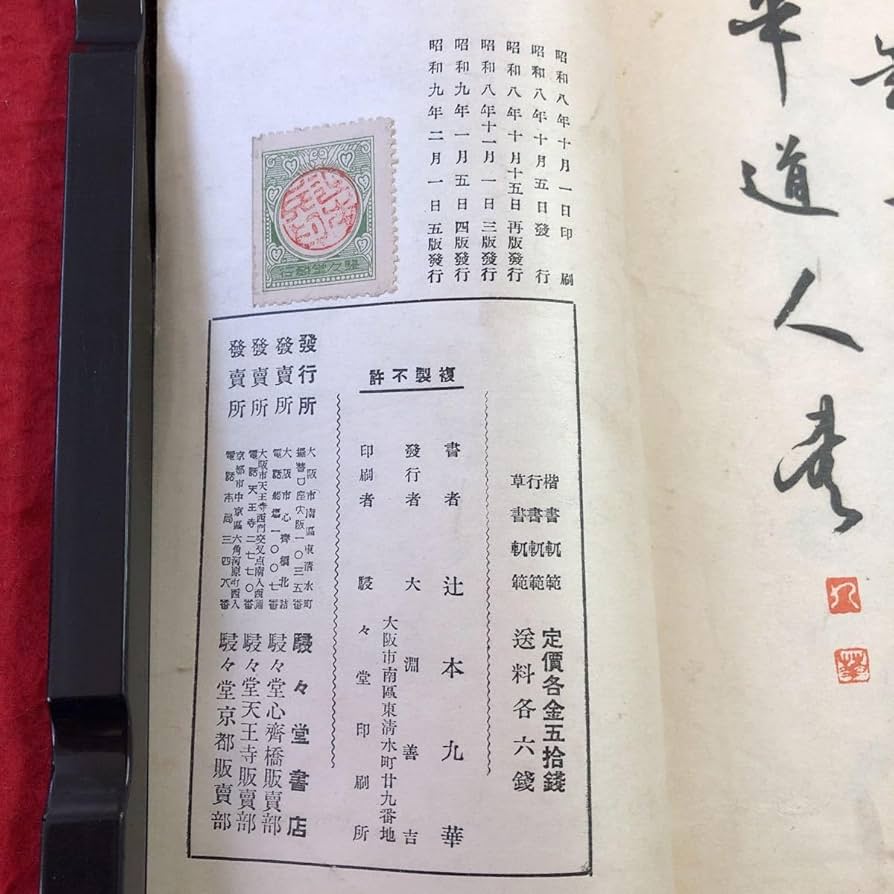 道人書
昭和八年十月一日印刷
昭和八年十月五日發行
昭和八年十月十五日再版發行
昭和八年十一月一日三版發行
昭和九年一月五日四版發行
昭和九年二月一日五版發行
楷書軌範
行書軌範
草書軌範
定價各金五拾錢
送料各六錢
複製不許
書者 辻本九華
發行者 大淵善吉
大阪市南區東清水町廿九番地
印刷者 駸々堂印刷所
發行所 大阪市南區東清水町 駸々堂書店
振替口座大阪一〇三五番
發賣所 大阪市心齊橋北詰 駸々堂心齊橋販賣部
電話船場一〇〇七番
發賣所 大阪市天王寺西門交叉点南入西側 駸々堂天王寺販賣部
電話天王寺二七七〇番
發賣所 京都市中京區六角河原町西入 駸々堂京都販賣部
電話本局三四六番